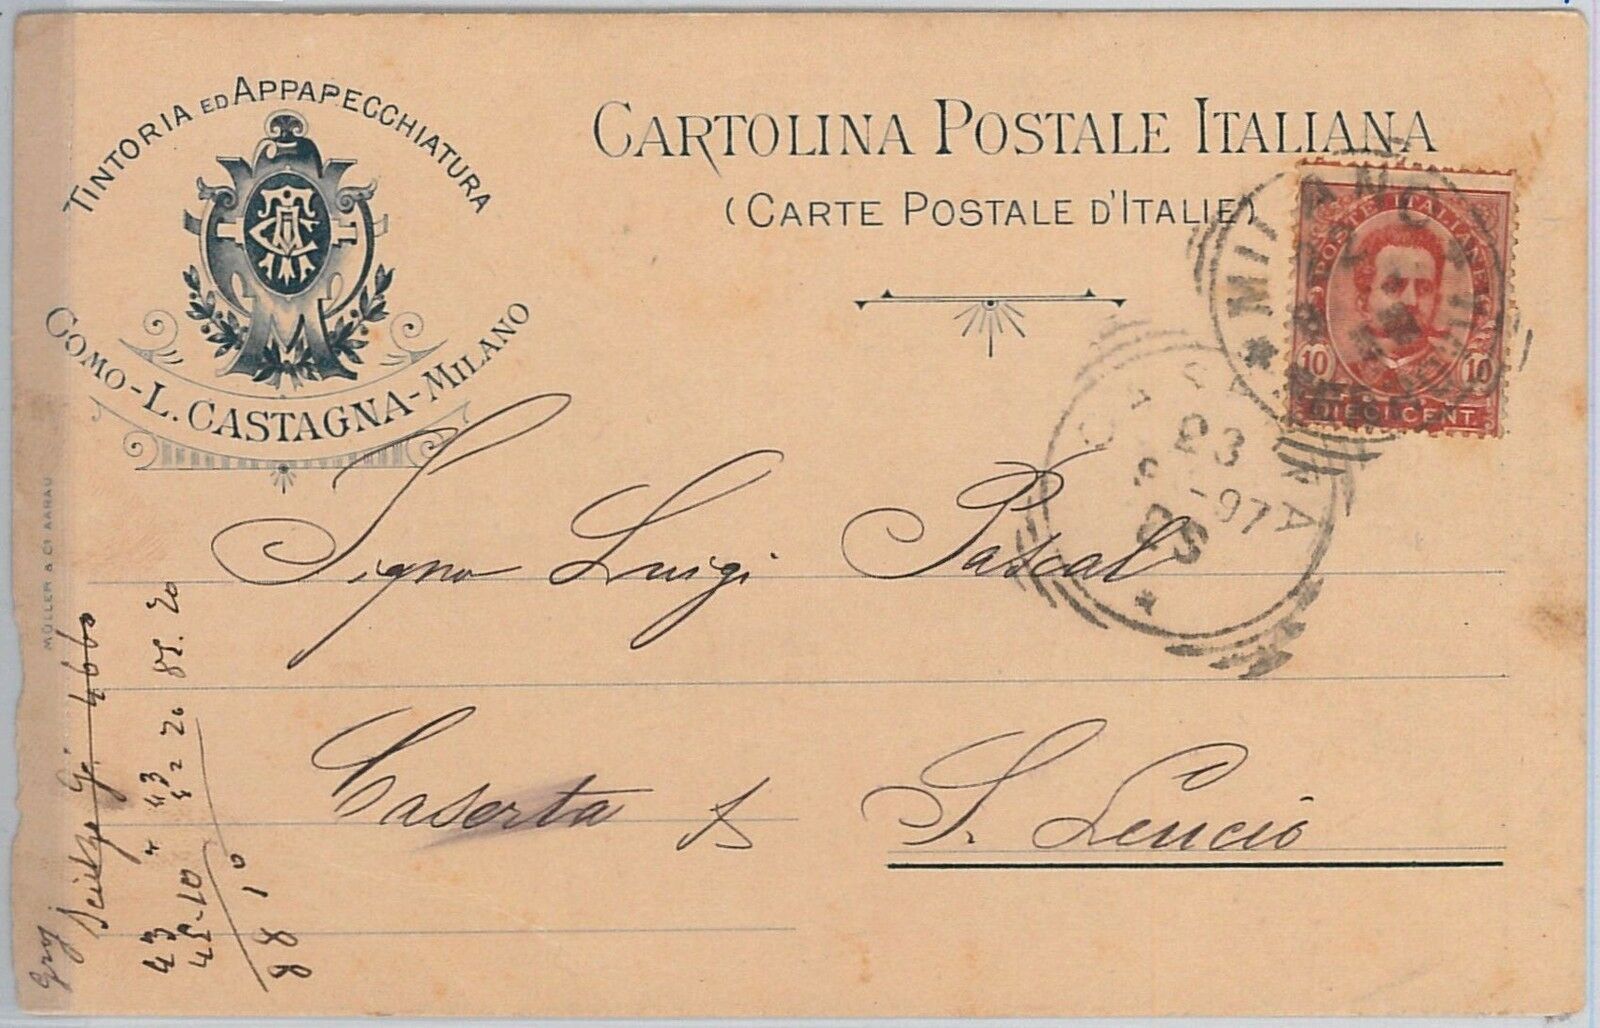 TINTORIA ED APPAPECCHIATURA
COMO - L. CASTAGNA - MILANO
CARTOLINA POSTALE ITALIANA
(CARTE POSTALE D'ITALIE)
MILANO
POSTE ITALIANE
10 10
DIECI CENT.
CASERTA
97
Signor Luigi Pascal
Caserta
S. Leucio
MÜLLER & Cº AARAU
43
45-10
88 10